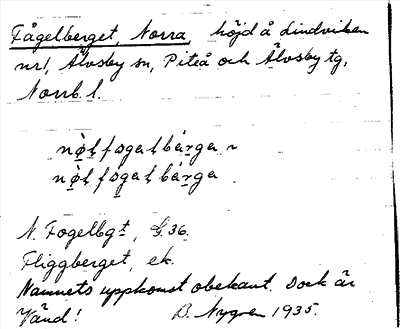 Fågelberget, Norra, höjd å Lindviken
nr1, Älvsby sn, Piteå och Älvsby tg,
Norrb. l.
nø̀ḷfogaḷbárga ~
nø̀ḷfógaḷbárga
N. Fogelbgt, G. 36.
Fliggberget, ek.
Namnets uppkomst obekant. Dock är
Vänd! B. Nygren 1935.